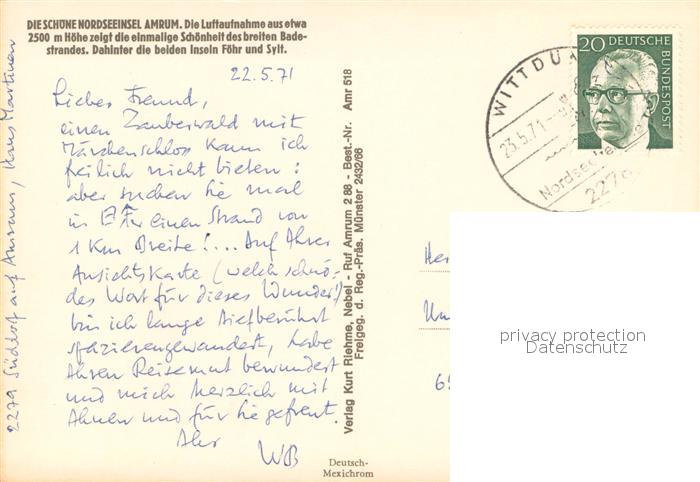 DIE SCHÖNE NORDSEEINSEL AMRUM. Die Luftaufnahme aus etwa
2500 m Höhe zeigt die einmalige Schönheit des breiten Bade-
strandes. Dahinter die beiden Inseln Föhr und Sylt.
22.5.71
Lieber Freund,
einen Zauberwald mit
Märchenschloss kann ich
freilich nicht bieten:
aber suchen Sie mal
in einen Strand von
1 Km Breite!... Auf Ihrer
Ansichtskarte (welch schnö-
des Wort für dieses Wunder!)
bin ich lange tiefberührt
spazierengewandert, habe
Ihren Reisemut bewundert
und mich herzlich mit
Ihnen und für Sie gefreut.
Ihr
WB
2279 Süddorf auf Amrum, Haus Martinen
Verlag Kurt Riehme, Nebel - Ruf Amrum 2 88 - Best.-Nr. Amr 518
Freigeg. d. Reg.-Präs. Münster 2432/66
Deutsch-
Mexichrom
20 DEUTSCHE
BUNDESPOST
WITTDÜN
23.5.71
227
Her
69
privacy protection
Datenschutz